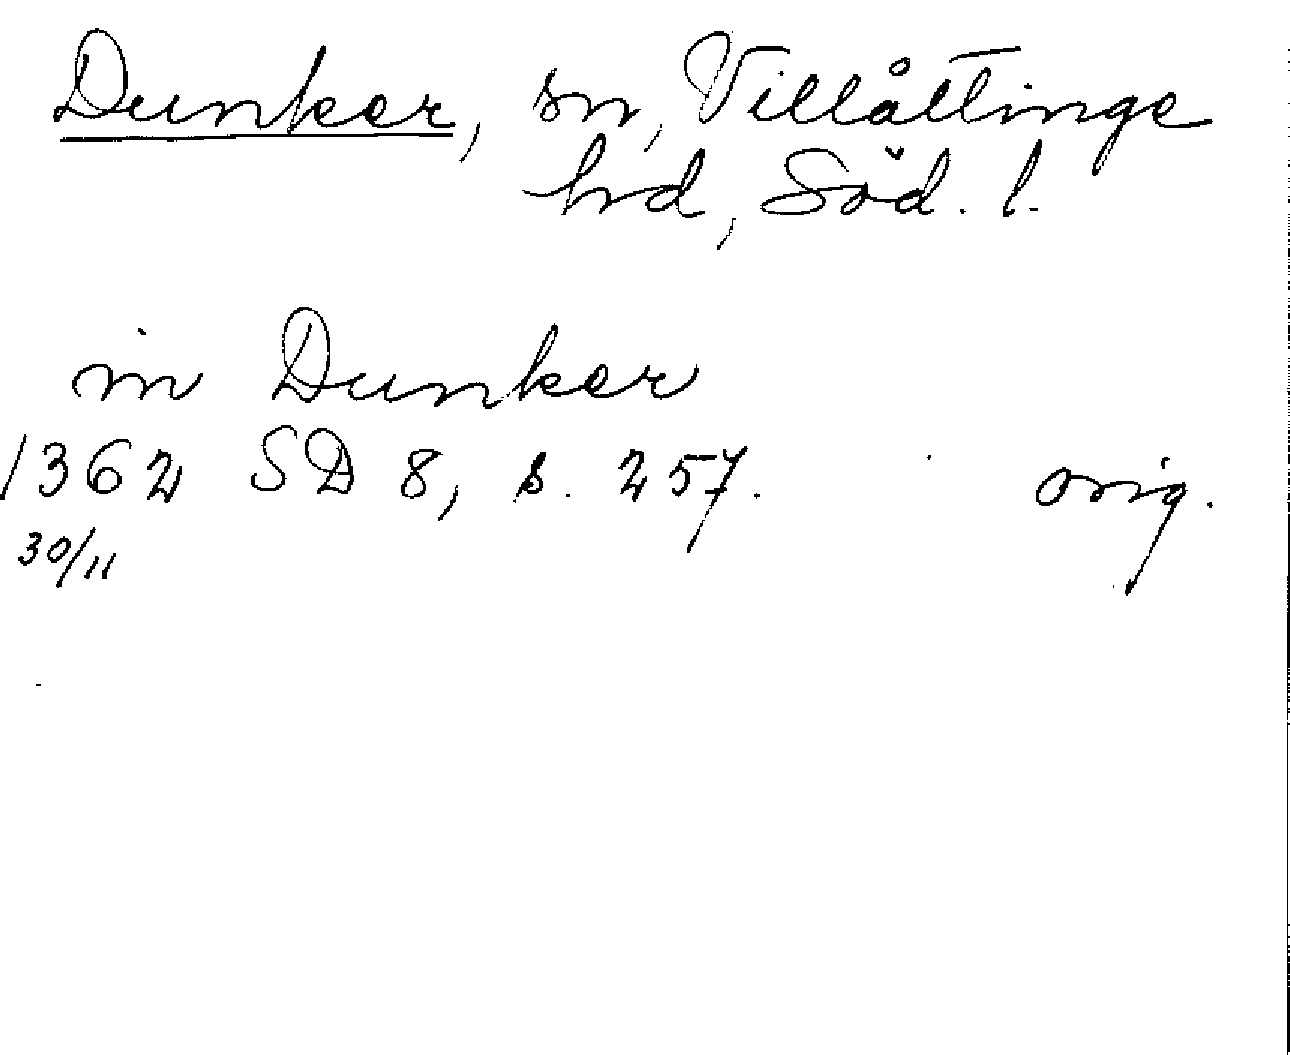 Dunker, sn, Villåttinge
hd, Söd. l.
in Dunker
1362 SD 8, s. 257. orig.
30/11